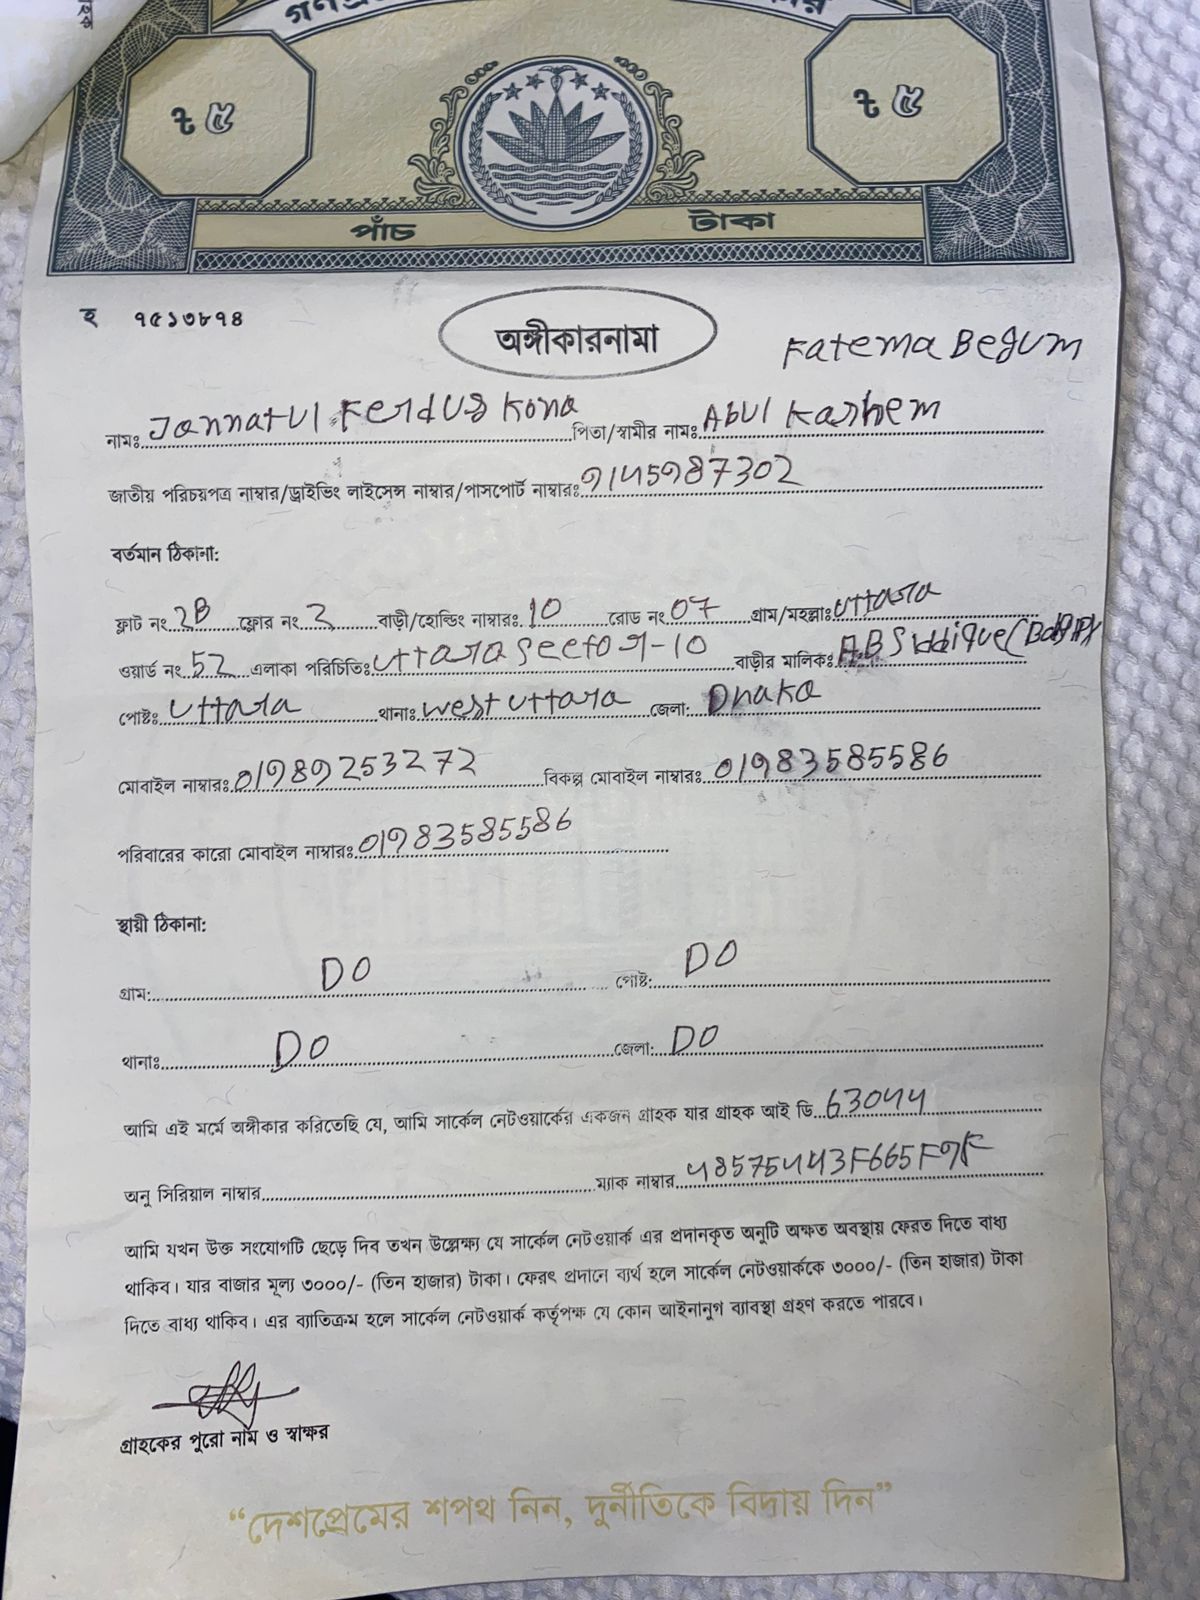 ৳ ৫
৳ ৫
পাঁচ টাকা
হ ৭৫১৩৮৭৪
অঙ্গীকারনামা
Fatema Begum
নামঃ Jannatul Ferdus Kona পিতা/স্বামীর নামঃ Abul Kashem
জাতীয় পরিচয়পত্র নাম্বার/ড্রাইভিং লাইসেন্স নাম্বার/পাসপোর্ট নাম্বারঃ 9145987302
বর্তমান ঠিকানা:
ফ্লাট নং 2B ফ্লোর নং 2 বাড়ী/হোল্ডিং নাম্বারঃ 10 রোড নং 07 গ্রাম/মহল্লাঃ Uttara
ওয়ার্ড নং 52 এলাকা পরিচিতিঃ Uttara Sector-10 বাড়ীর মালিকঃ A.B Siddique
পোষ্টঃ Uttara থানাঃ West Uttara জেলা: Dhaka
মোবাইল নাম্বারঃ 01989253272 বিকল্প মোবাইল নাম্বারঃ 01983585586
পরিবারের কারো মোবাইল নাম্বারঃ 01983585586
স্থায়ী ঠিকানা:
গ্রাম: DO পোষ্ট: DO
থানাঃ DO জেলা: DO
আমি এই মর্মে অঙ্গীকার করিতেছি যে, আমি সার্কেল নেটওয়ার্কের একজন গ্রাহক যার গ্রাহক আই ডি 63044
অনু সিরিয়াল নাম্বার ম্যাক নাম্বার 48575443F665F9F
আমি যখন উক্ত সংযোগটি ছেড়ে দিব তখন উল্লেক্ষ্য যে সার্কেল নেটওয়ার্ক এর প্রদানকৃত অনুটি অক্ষত অবস্থায় ফেরত দিতে বাধ্য
থাকিব। যার বাজার মূল্য ৩০০০/- (তিন হাজার) টাকা। ফেরৎ প্রদানে ব্যর্থ হলে সার্কেল নেটওয়ার্ককে ৩০০০/- (তিন হাজার) টাকা
দিতে বাধ্য থাকিব। এর ব্যাতিক্রম হলে সার্কেল নেটওয়ার্ক কর্তৃপক্ষ যে কোন আইনানুগ ব্যাবস্থা গ্রহণ করতে পারবে।
গ্রাহকের পুরো নাম ও স্বাক্ষর
“দেশপ্রেমের শপথ নিন, দুর্নীতিকে বিদায় দিন”